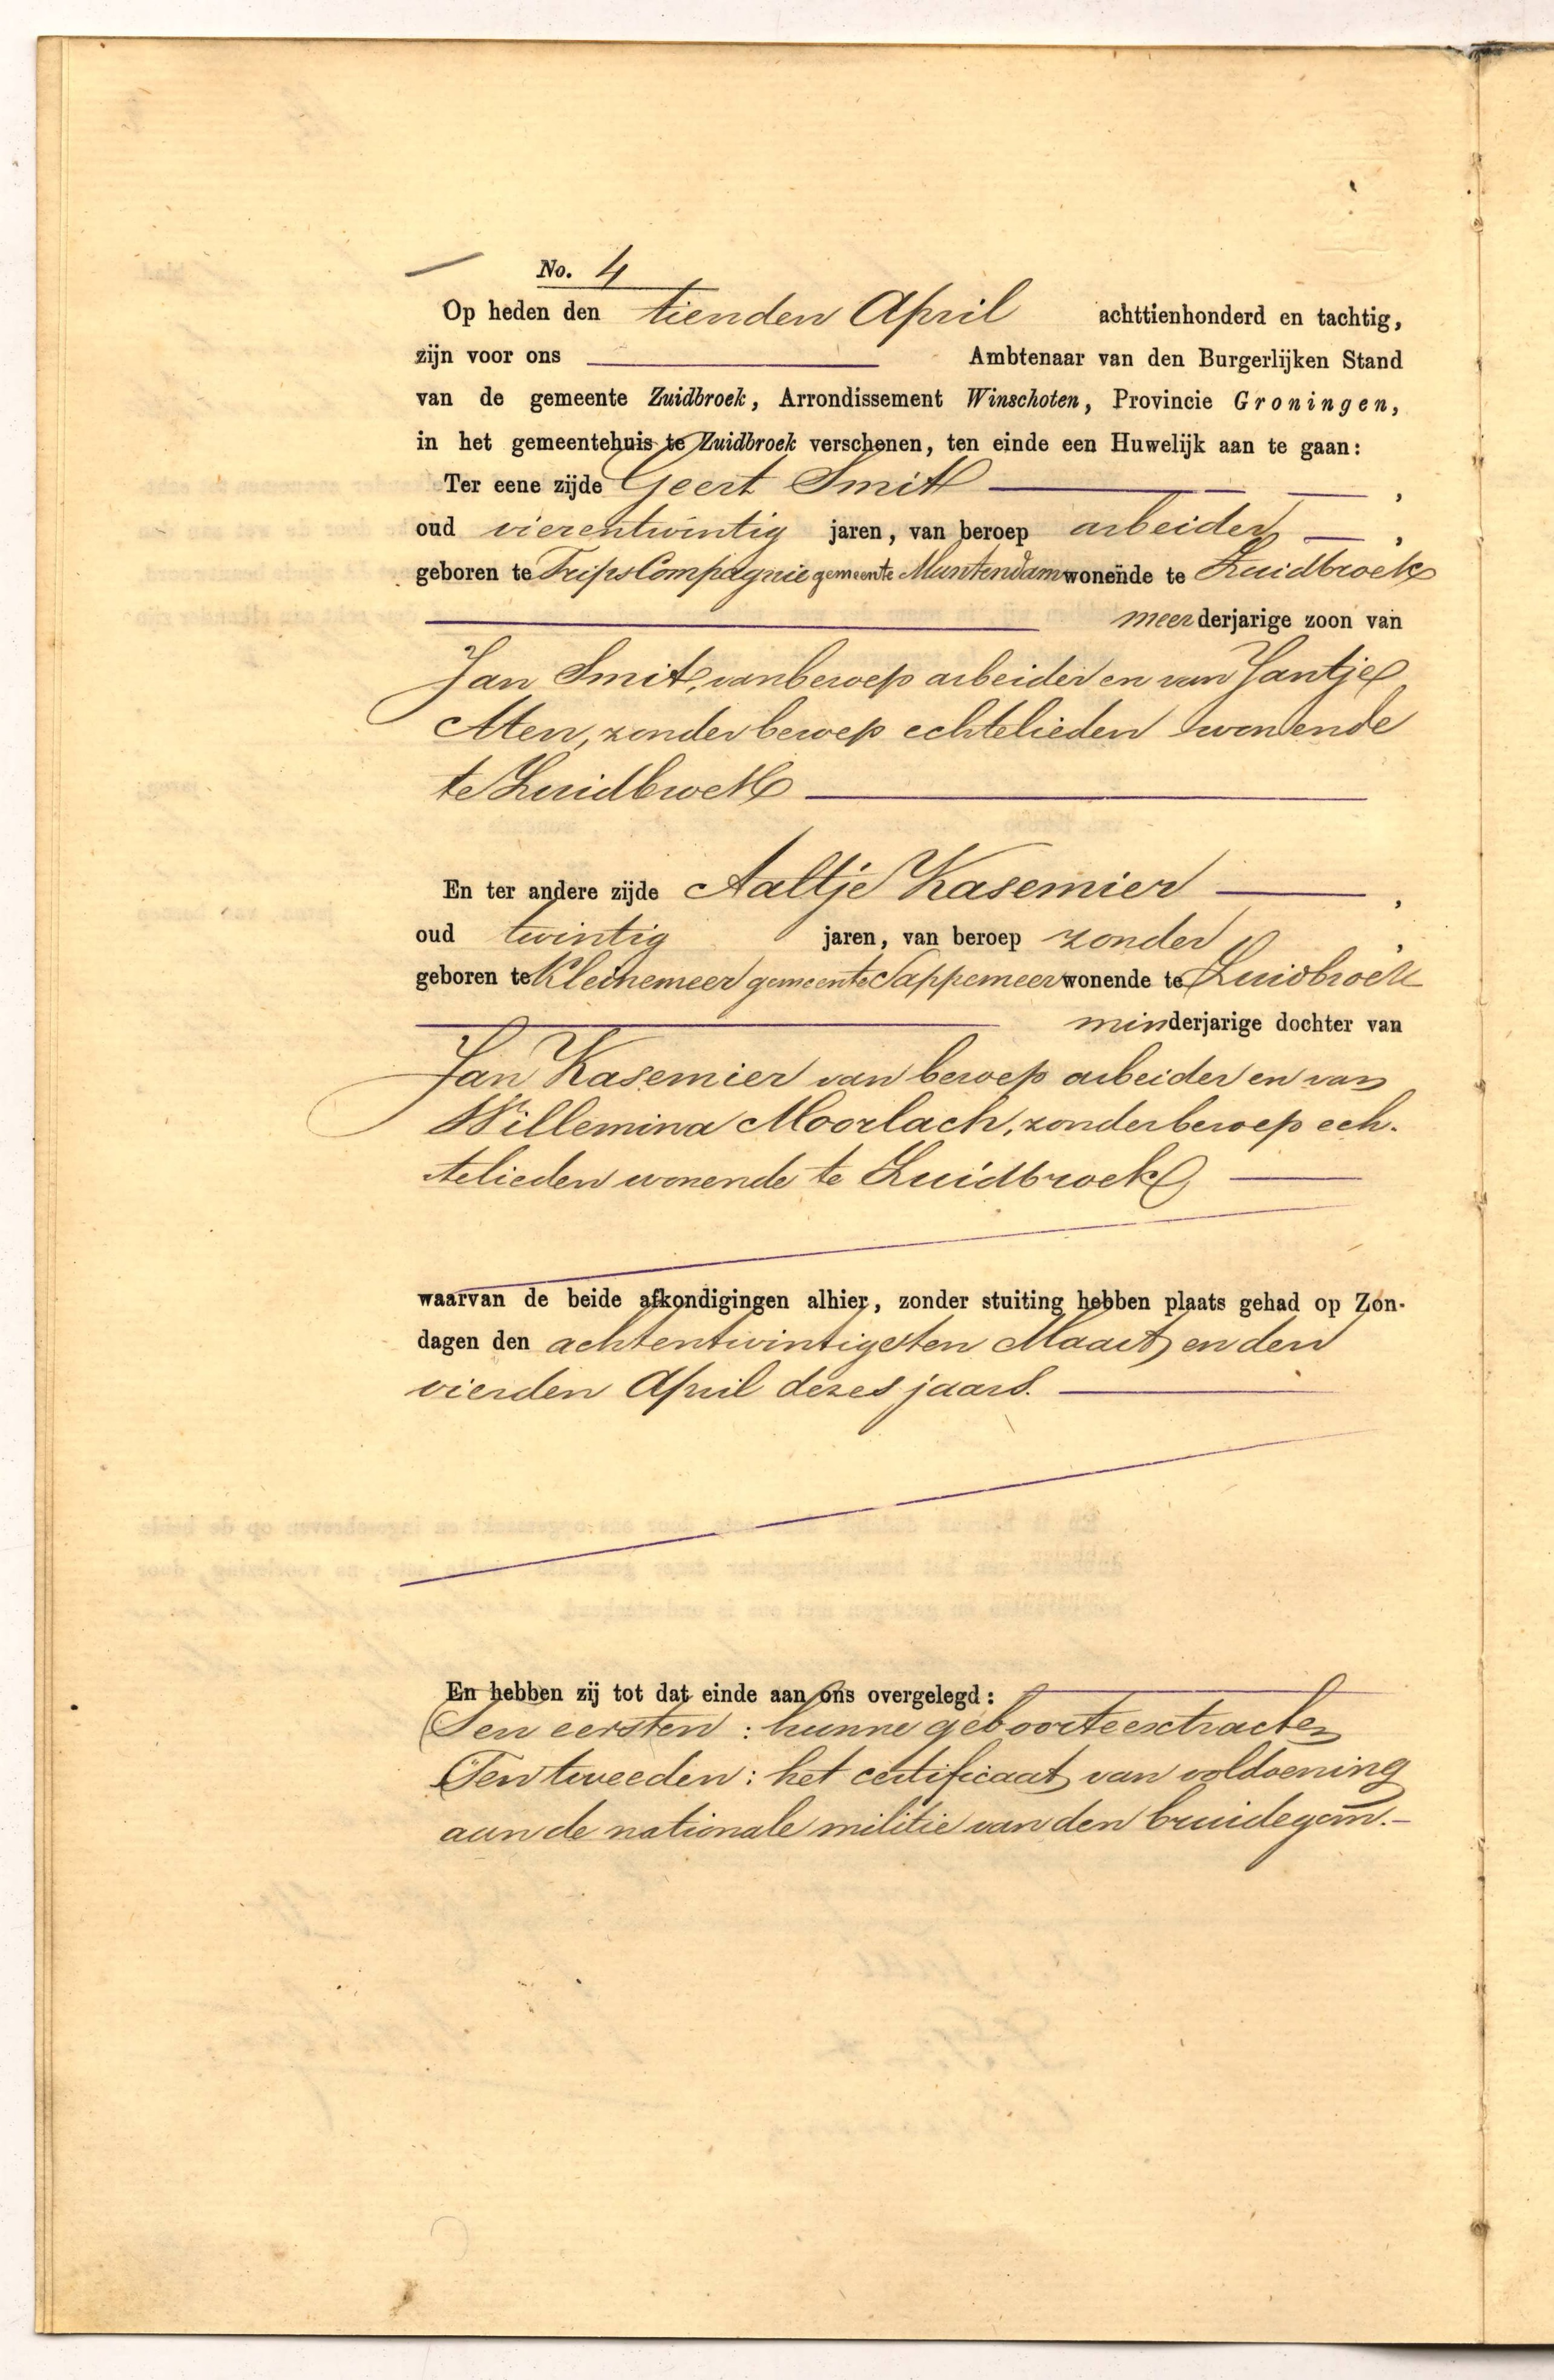 No. 4
Op heden den tienden April achttienhonderd en tachtig,
zijn voor ons Ambtenaar van den Burgerlijken Stand
van de gemeente Zuidbroek, Arrondissement Winschoten, Provincie Groningen,
in het gemeentehuis te Zuidbroek verschenen, ten einde een Huwelijk aan te gaan:
Ter eene zijde Geert Smit ,
oud vierentwintig jaren, van beroep arbeider ,
geboren te TripsCompagnie gemeente Muntendam wonende te Zuidbroek
meerderjarige zoon van
Jan Smit, van beroep arbeider en van Jantje
Aten, zonder beroep echtelieden wonende
te Zuidbroek
En ter andere zijde Aaltje Kasemier ,
oud twintig jaren, van beroep zonder ,
geboren te Kleinemeer gemeente Sappemeer wonende te Zuidbroek
minderjarige dochter van
Jan Kasemier van beroep arbeider en van
Willemina Moorlach, zonder beroep ech-
telieden wonende te Zuidbroek
waarvan de beide afkondigingen alhier, zonder stuiting hebben plaats gehad op Zon-
dagen den achtentwintigsten Maart en den
vierden April dezes jaars.
En hebben zij tot dat einde aan ons overgelegd:
Ten eersten: hunne geboorteextracten
Ten tweeden: het certificaat van voldoening
aan de nationale militie van den bruidegom.